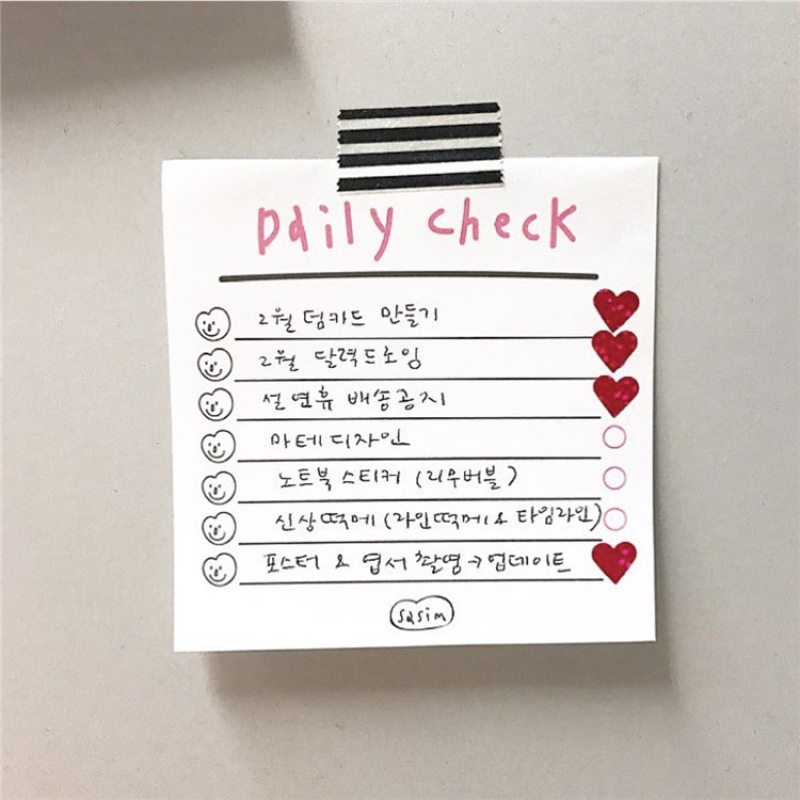 Daily check
2월 덤카드 만들기
2월 달력드로잉
설 연휴 배송공지
마테디자인
노트북 스티커 (리무버블)
신상떡메 (라인떡메 & 타임라인)
포스터 & 엽서 촬영→업데이트
sqsim